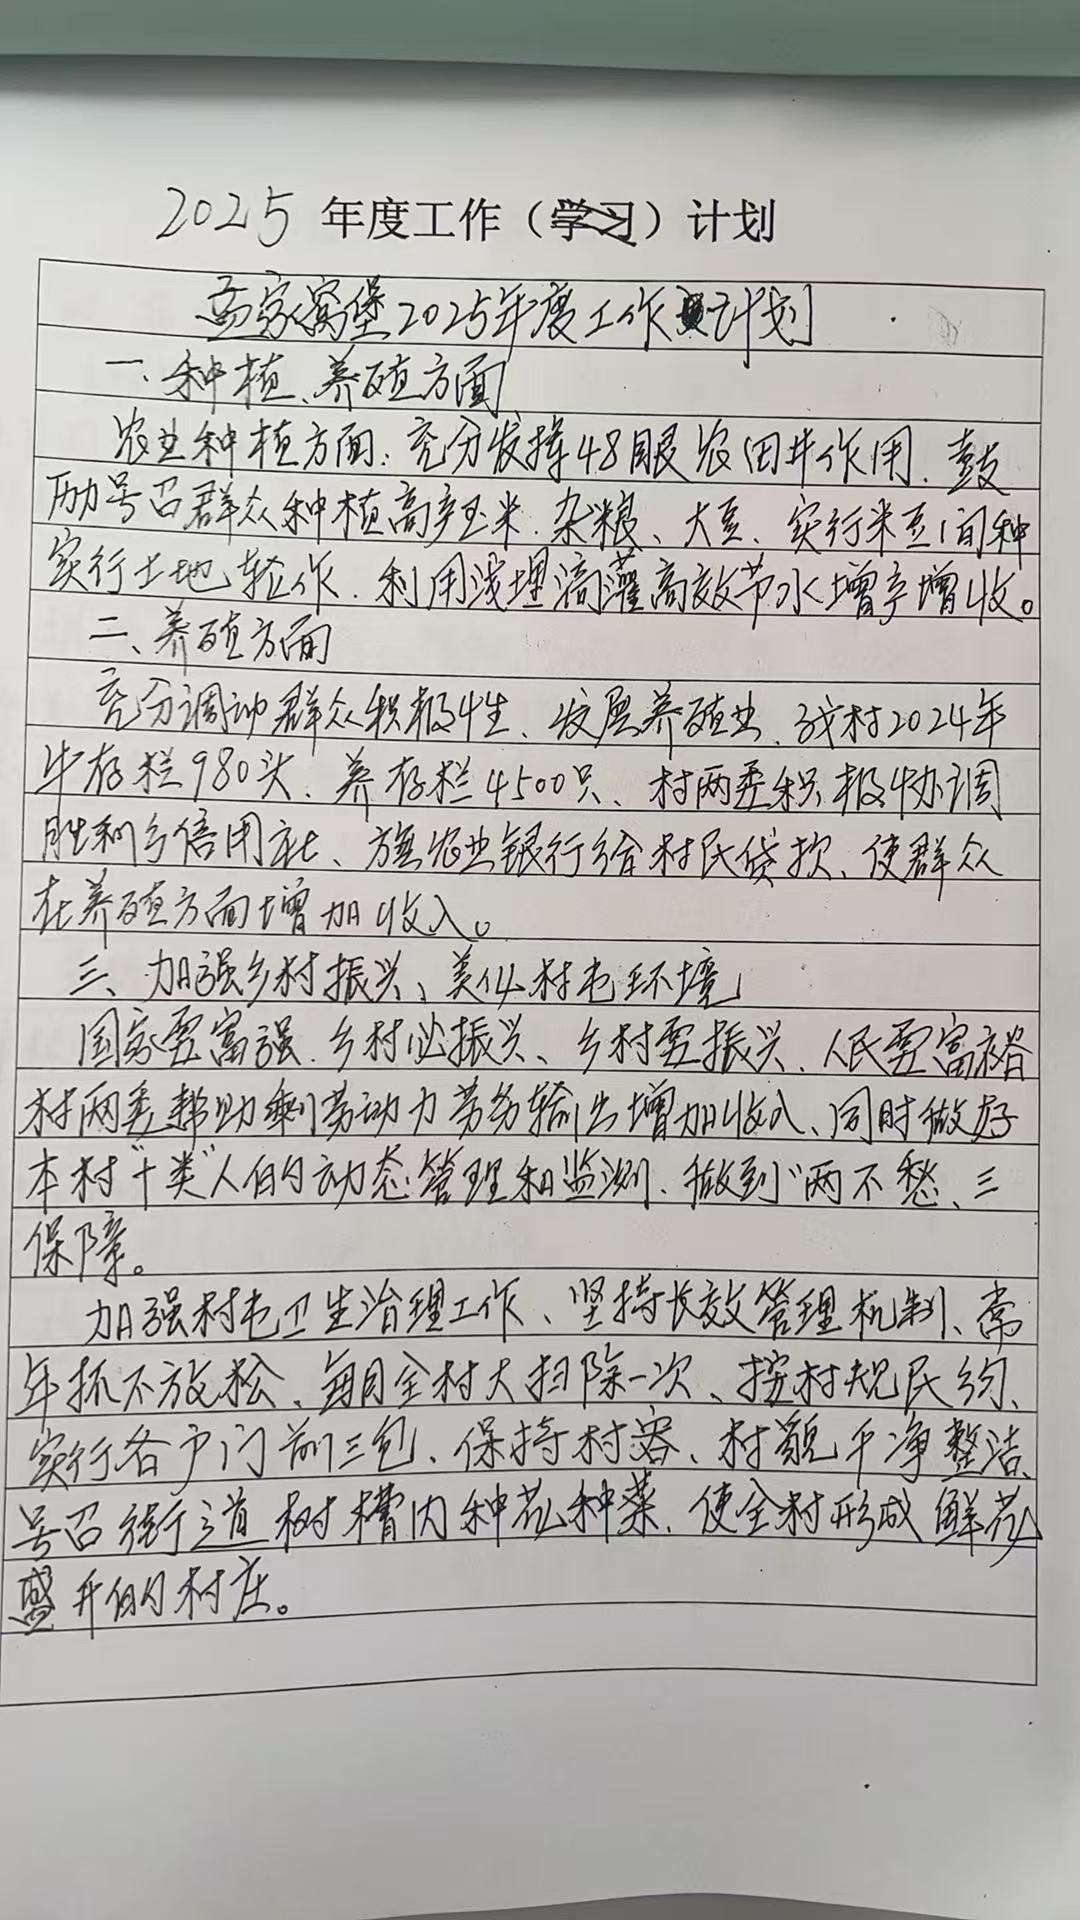 2025 年度工作（学习）计划
孟家窝堡2025年度工作计划
一、种植、养殖方面
农业种植方面：充分发挥48眼农田井作用、鼓
励号召群众种植高产玉米、杂粮、大豆、实行米豆间种
实行土地轮作、利用浅埋滴灌高效节水增产增收。
二、养殖方面
充分调动群众积极性、发展养殖业、我村2024年
牛存栏980头、养存栏4500只、村两委积极协调
胜利乡信用社、旗农业银行给村民贷款、使群众
在养殖方面增加收入。
三、加强乡村振兴、美化村屯环境
国家要富强、乡村必振兴、乡村要振兴、人民要富裕
村两委帮助剩劳动力劳务输出增加收入、同时做好
本村"十类"人的动态管理和监测、做到"两不愁、三
保障。
加强村屯卫生治理工作、坚持长效管理机制、常
年抓不放松、每月全村大扫除一次、按村规民约、
实行各户门前三包、保持村容、村貌干净整洁、
号召街道树槽内种花种菜、使全村形成鲜花
盛开的村庄。